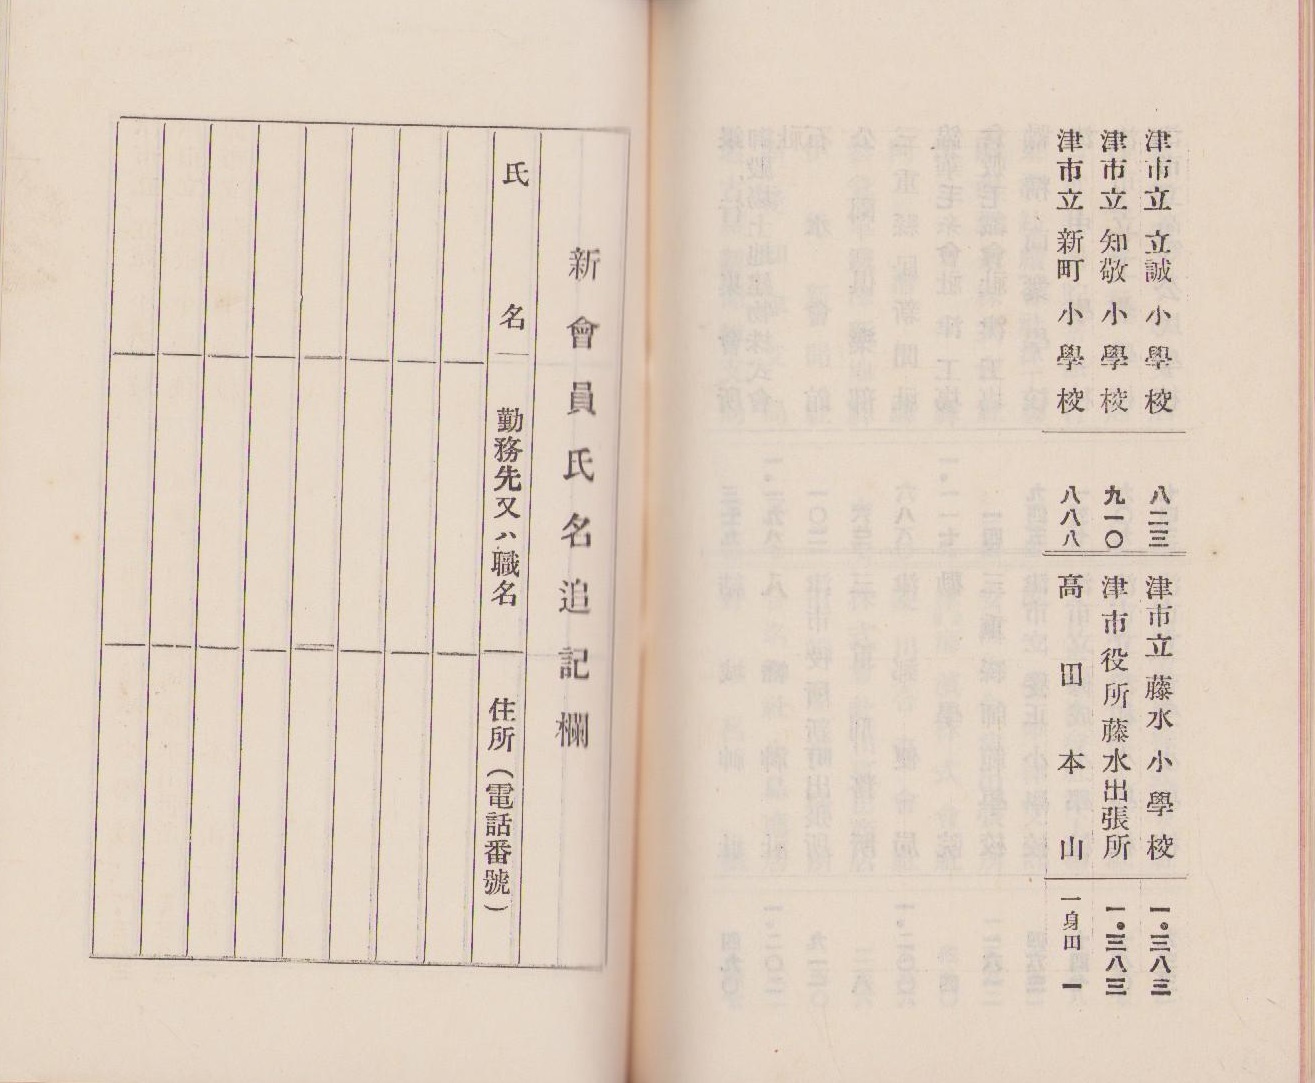 津市立立誠小學校 八二三
津市立知敬小學校 九一〇
津市立新町小學校 八八八
津市立藤水小學校 一〇三八三
津市役所藤水出張所 一〇三八三
高田本山 一身田 一
新會員氏名追記欄
氏名
勤務先又ハ職名
住所(電話番號)